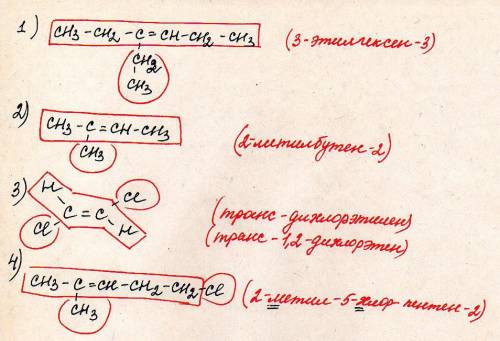 1) CH3-CH2-C=CH-CH2-CH3 (3-этилгексен-3)
CH2
CH3
2) CH3-C=CH-CH3
CH3 (2-метилбутен-2)
3) H Cl
C=C (транс-дихлорэтилен)
Cl H (транс-1,2-дихлорэтен)
4) CH3-C=CH-CH2-CH2-Cl
CH3 (2-метил-5-хлор пентен-2)